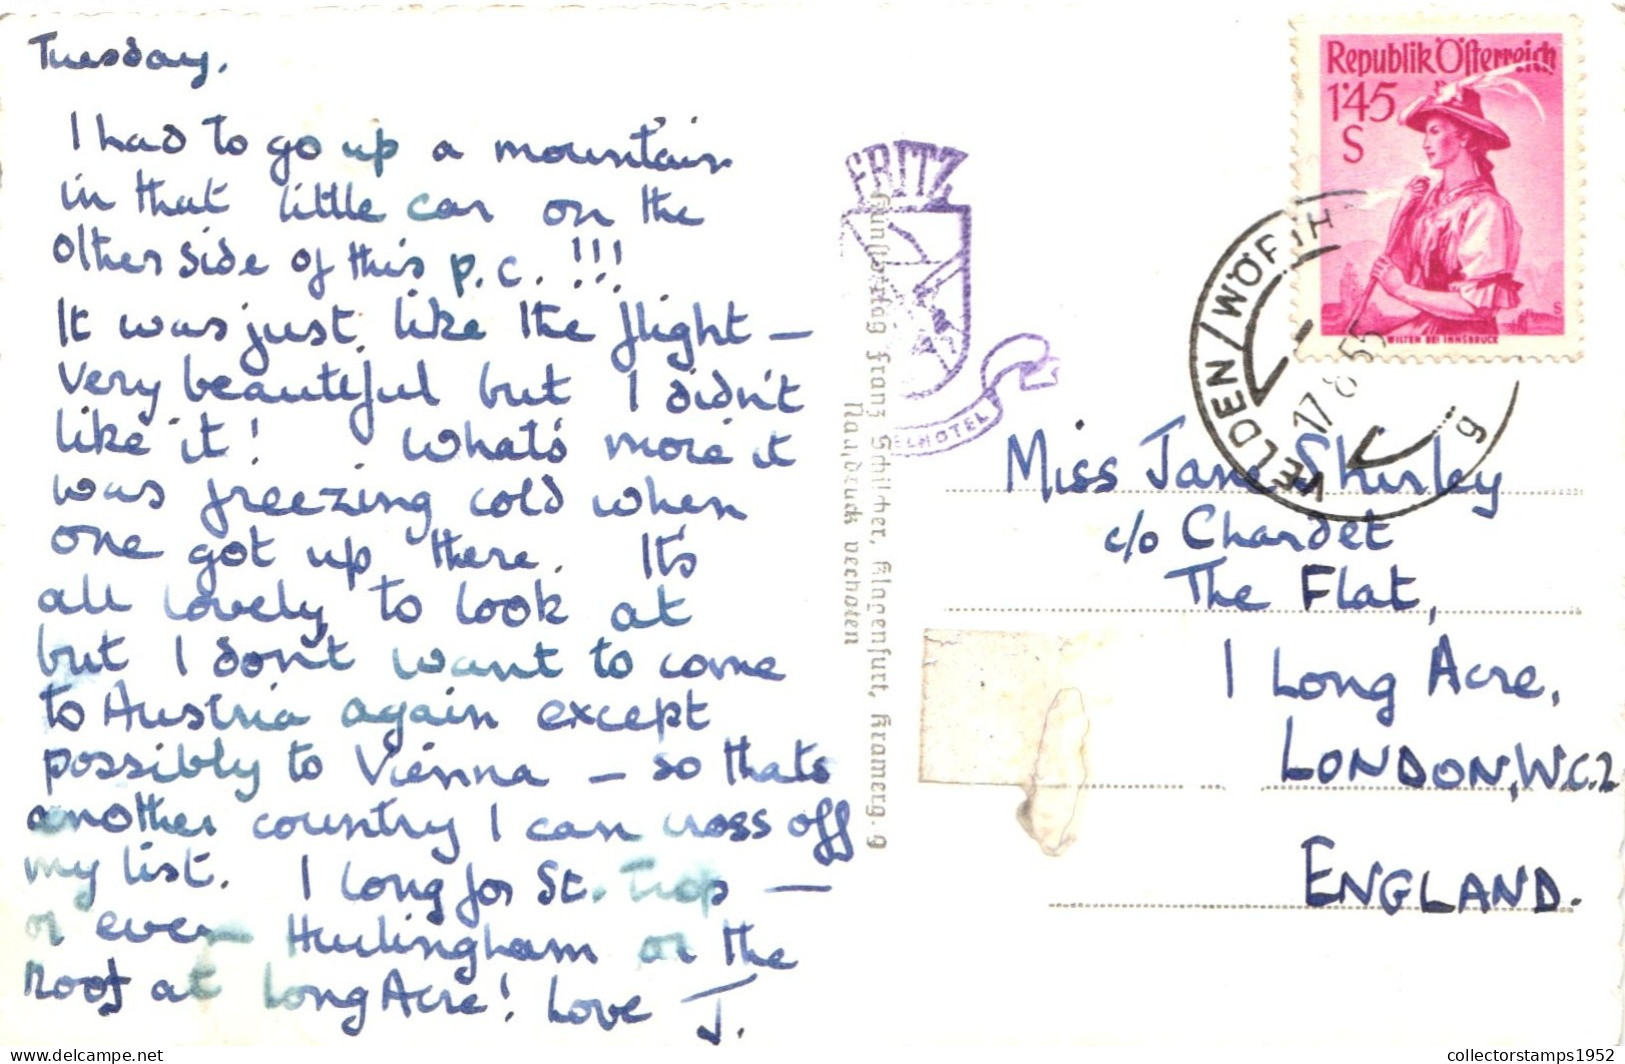 Tuesday.
I had to go up a mountain
in that little car on the
other side of this p.c. !!!
It was just like the flight –
very beautiful but I didn't
like it! What's more it
was freezing cold when
one got up there. It's
all lovely to look at
but I don't want to come
to Austria again except
possibly to Vienna – so thats
another country I can cross off
my list. I long for St. Trop –
or even Hurlingham or the
roof at Long Acre! Love J.
FRITZ
ELHOTEL
Kunstverlag Franz Schilcher, Klagenfurt, Kramerg. 9
Nachdruck verboten
Republik Österreich
1'45
S
WILTEN BEI INNSBRUCK
VELDEN / WÖRTH
17 8 55
9
Miss Jane Shirley
c/o Chardet
The Flat,
1 Long Acre,
LONDON, W.C.2
ENGLAND.
collectorstamps1952